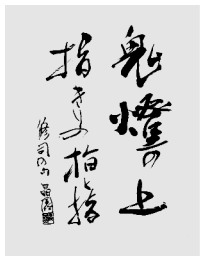 鬼燈の上
指きりの指と指
修司の句